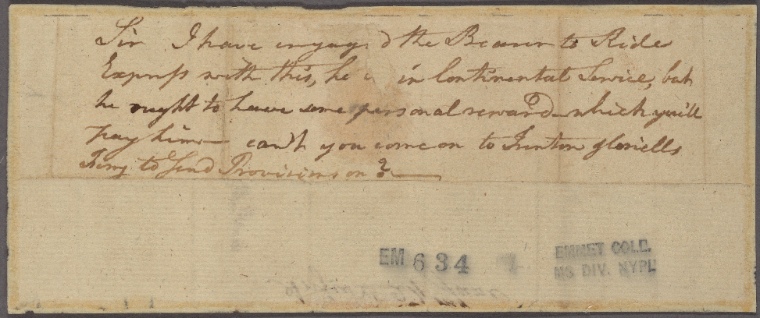 Sir I have engag'd the Bearer to Ride
Express with this, he is in Continental Service, but
he ought to have some personal reward which you'll
pay him — can't you come on to Trenton
to Send Provisions on?
EM 634
EMMET COLL.
MS DIV. NYPL